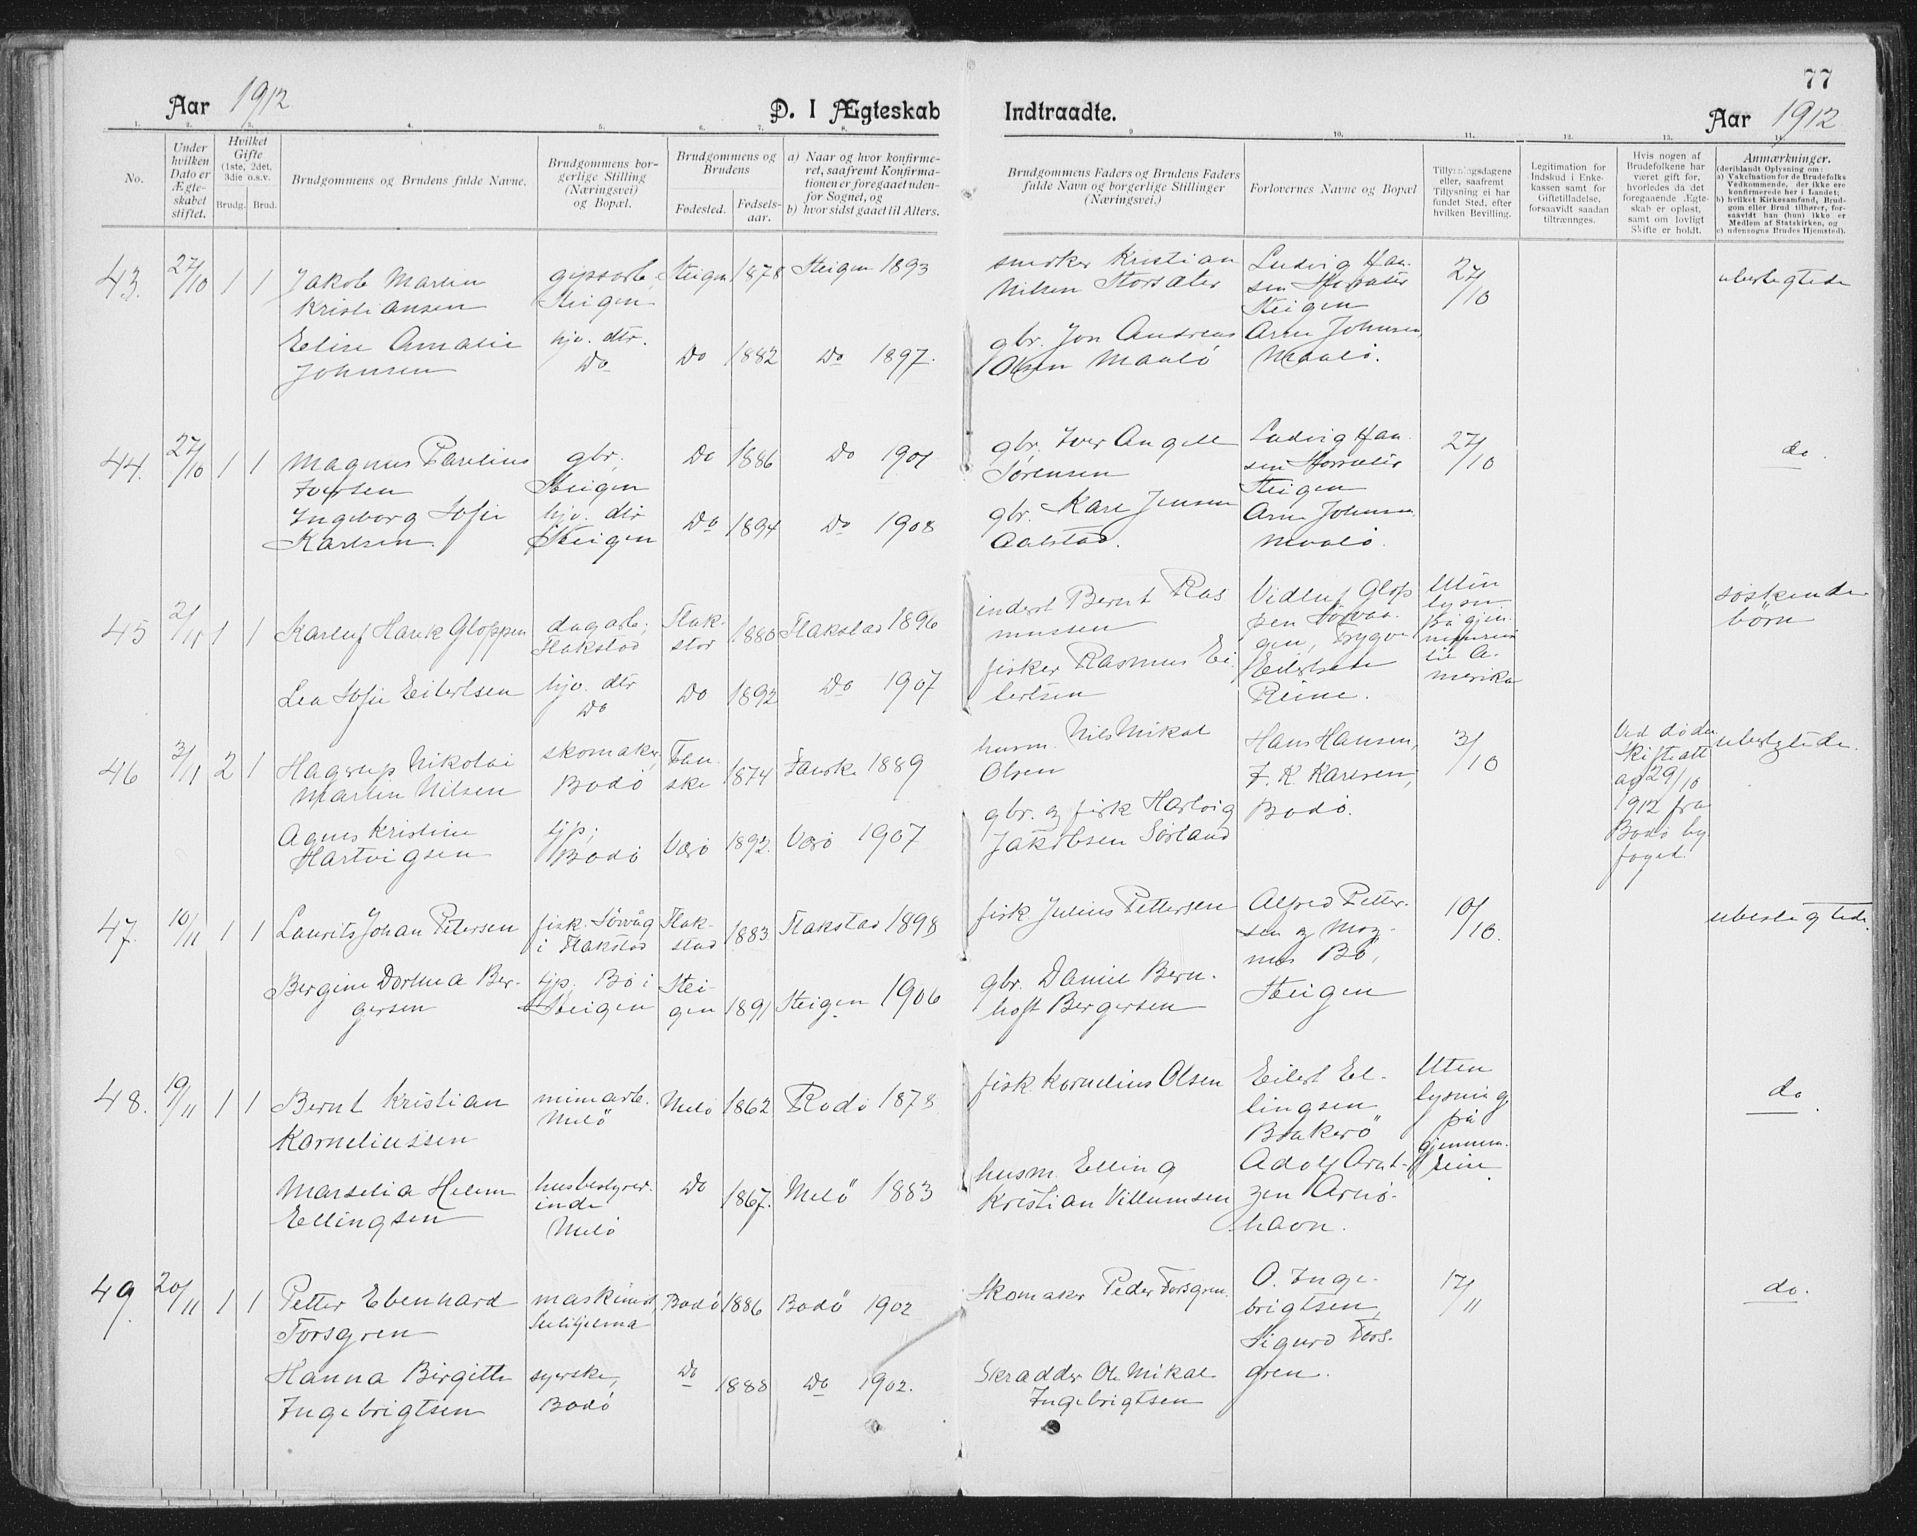 77
Aar 1912
D. I Ægteskab
Indtraadte.
Aar 1912
1. 2. 3. 4. 5. 6. 7. 8. 9. 10. 11. 12. 13. 14.
No.
Under
hvilken
Dato er
Ægte-
skabet
stiftet.
Hvilket
Gifte
(1ste, 2det,
3die o.s.v.
Brudg. Brud.
Brudgommens og Brudens fulde Navne.
Brudgommens bor-
gerlige Stilling
(Næringsvei)
og Bopæl.
Brudgommens og
Brudens
Fødested.
Fødsels-
aar.
a) Naar og hvor konfirme-
ret, saafremt Konfirma-
tionen er foregaaet uden-
for Sognet, og
b) hvor sidst gaaet til Alters.
Brudgommens Faders og Brudens Faders
fulde Navn og borgerlige Stillinger
(Næringsvei.)
Forlovernes Navne og Bopæl
Tillysningsdagene
eller, saafremt
Tillysning ei har
fundet Sted, efter
hvilken Bevilling.
Legitimation for
Indskud i Enke-
kassen samt for
Giftetilladelse,
forsaavidt saadan
tiltrænnges.
Hvis nogen af
Brudefolkene har
været gift før,
hvorledes da det
foregaaende Ægte-
skab er opløst,
samt om lovligt
Skifte er holdt.
Anmærkninger.
(deriblandt Oplysning om:
a) Vakcination for de Brudefolks
Vedkommende, der ikke ere
konfirmerede her i Landet;
b) hvilket Kirkesamfund, Brud-
gom eller Brud tilhører, for-
saavidt han (hun) ikke er
Medlem af Statskirken, og
c) udensogns Brudes Hjemsted).
43. 27/10 1 1
Jakob Martin
Kristiansen
Steigen
Steigen 1878 Steigen 1893
snedker Kristian
Nilsen Storsæter
Ludvig Han-
sen Storsæter
Steigen
27/10
ubeslegtede
Elise Amalie
Johnsen
hjv. dtr.
Do
Do 1882 Do 1897.
gbr. Jon Andreas
Olsen Maalö
Arne Johnsen,
Maalö.
44. 27/10 1 1
Magnus Parelius
Iversen
gbr.
Steigen
Do 1886 Do 1901
gbr. Iver Angell
Sörensen
Ludvig Han-
sen Storsæter
Steigen
27/10
do.
Ingeborg Sofie
Karlsen.
hjv. dtr
Steigen
Do 1894 Do 1908
gbr. Karl Jensen
Aalstad.
Arne Johnsen
Maalö.
45 2/11 1 1
Karluf Hauk Gloppen
dagarb.
Flakstad
Flak-
stad 1880 Flakstad 1896
inderst Bernt Ras
mussen
Vidluf Glop
pen Sörvaa-
gen, Trygve
Eilertsen
Reine.
Uten
lysn
på gjen-
nemreise
til A-
merika
söskende
börn
Lea Sofie Eilertsen
hjv. dtr
Do
Do 1892 Do 1907
fisker Rasmus Ei-
lertsen
46 3/11 2 1
Hagrup Nikolai
Martin Nilsen
skomaker,
Bodö
Fau-
ske 1874 Fauske 1889
husm. Nils Mikal
Olsen
Hans Hansen,
F. K. Karlsen,
Bodö.
3/10
Ved döden
Skifteatt
av 29/10
1912 fra
Bodö by
foged.
ubeslegtede.
Agnes Kristine
Hartvigsen
tjp.
Bodö
Værö 1892. Værö 1907
gbr. og fisk Hartvig
Jakobsen Sörland
47. 10/11 1 1
Laurits Johan Petersen
fisk. Sörvåg
i Flakstad
Flak-
stad 1883. Flakstad 1898
fisk Julius Pettersen
Alfred Petter-
sen og Mag-
nus Bö,
Steigen
10/10.
ubeslegtede.
Bergine Dorthea Ber-
gersen
tjp. Bö i
Steigen
Stei-
gen 1891 Steigen 1906
gbr. Daniel Bern-
hoft Bergersen
48. 19/11 1 1
Bernt Kristian
Korneliussen
minearb.
Melö
Melö 1862 Rodö 1878
fisk Kornelius Olsen
Eilert El-
lingsen
Bukerö
Uten
lysning
på
gjennem-
reise
do
Marselia Helene
Ellingsen
husbestyrer-
inde
Melö
Do 1867. Melö 1883
husm. Elling
Kristian Villumsen
Adolf Arnt-
zen Arnö-
havn.
49. 20/11 1 1
Petter Ebenhard
Forsgren
maskinist
Sulitjelma
Bodö 1886 Bodö 1902
Skomaker Peder Forsgren.
O. Inge-
brigtsen,
Sigurd Fors-
gren.
17/11
do.
Hanna Birgitte
Ingebrigtsen
syerske,
Bodö
Do 1888 Do 1902.
Skradder Ole Mikal
Ingebrigtsen